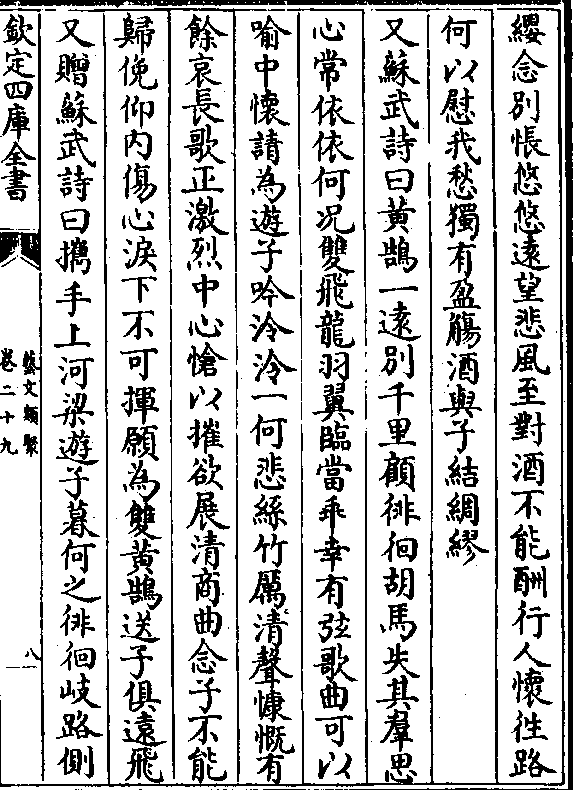 纓念别悵悠悠遠望悲風至對酒不能酬行人懷徃路
何以慰我愁獨有盈觴酒與子結綢繆
又蘇武詩曰黄鵠一逺別千里顧徘徊胡馬失其羣思
心常依依何况雙飛龍羽翼臨當乖幸有弦歌曲可以
喻中懷請為遊子吟泠泠一何悲絲竹厲清聲慷慨有
餘哀長歌正激烈中心愴以摧欲展清商曲念子不能
歸俛仰内傷心淚下不可揮願為雙黄鵠送子俱遠飛
又贈蘇武詩曰攜手上河梁遊子暮何之徘徊岐路側
欽定四庫全書
藝文類聚
卷二十九
八